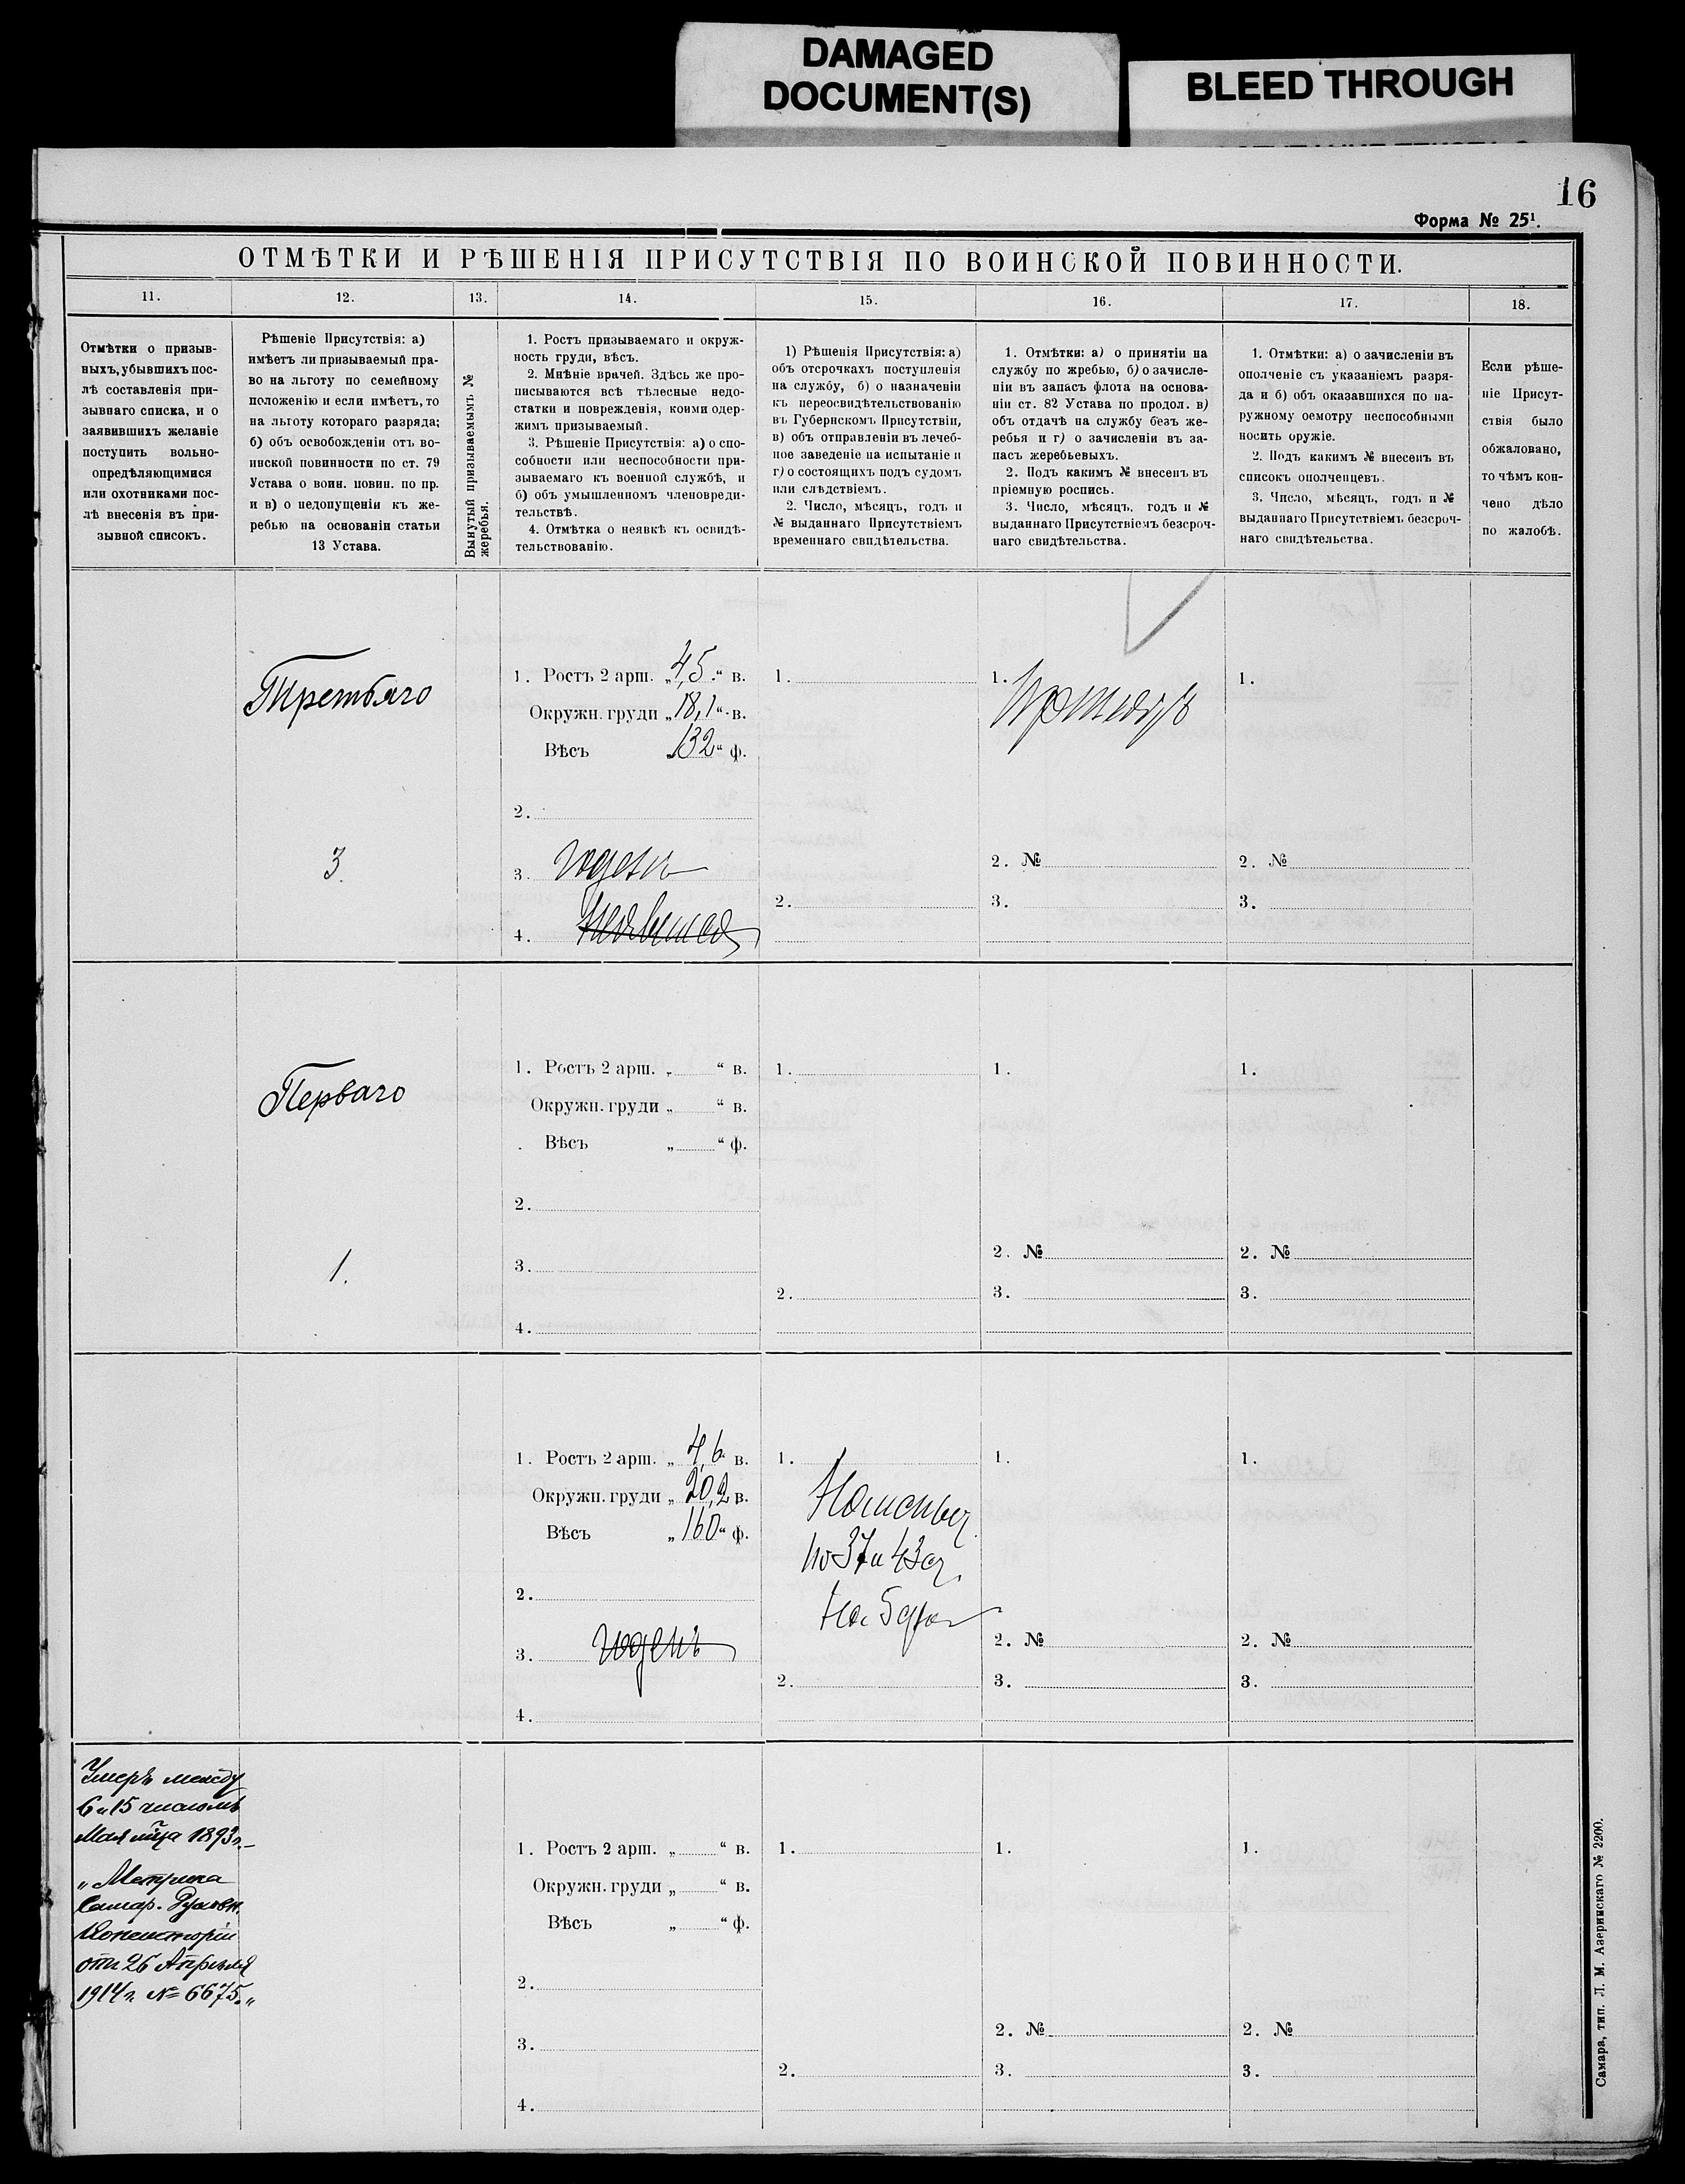 DAMAGED
DOCUMENT(S)
BLEED THROUGH
16
Форма № 25¹.
ОТМѢТКИ И РѢШЕНІЯ ПРИСУТСТВІЯ ПО ВОИНСКОЙ ПОВИННОСТИ.
11.
12.
13.
14.
15.
16.
17.
18.
Отмѣтки о призыв-
ныхъ, убывшихъ пос-
лѣ составленія при-
зывнаго списка, и о
заявившихъ желаніе
поступить вольно-
опредѣляющимися
или охотниками пос-
лѣ внесенія въ при-
зывной списокъ.
Рѣшеніе Присутствія: а)
имѣетъ ли призываемый пра-
во на льготу по семейному
положенію и если имѣетъ, то
на льготу котораго разряда;
б) объ освобожденіи отъ во-
инской повинности по ст. 79
Устава о воин. повин. по пр.
и в) о недопущеніи къ же-
ребью на основаніи статьи
13 Устава.
Вынутый призываемымъ №
жеребья.
1. Ростъ призываемаго и окруж-
ность груди, вѣсъ.
2. Мнѣніе врачей. Здѣсь же про-
писываются всѣ тѣлесные недо-
статки и поврежденія, коими одер-
жимъ призываемый.
3. Рѣшеніе Присутствія: а) о спо-
собности или неспособности при-
зываемаго къ военной службѣ, и
б) объ умышленномъ членовреди-
тельствѣ.
4. Отмѣтка о неявкѣ къ освидѣ-
тельствованію.
1) Рѣшенія Присутствія: а)
объ отсрочкахъ поступленія
на службу, б) о назначеніи
къ переосвидѣтельствованію
въ Губернскомъ Присутствіи,
в) объ отправленіи въ лечеб-
ное заведеніе на испытаніе и
г) о состоящихъ подъ судомъ
или слѣдствіемъ.
2. Число, мѣсяцъ, годъ и
№ выданнаго Присутствіемъ
временнаго свидѣтельства.
1. Отмѣтки: а) о принятіи на
службу по жребью, б) о зачисле-
ніи въ запасъ флота на основа-
ніи ст. 82 Устава по продол. в)
объ отдачѣ на службу безъ же-
ребья и г) о зачисленіи въ за-
пасъ жеребьевыхъ.
2. Подъ какимъ № внесенъ въ
пріемную роспись.
3. Число, мѣсяцъ, годъ и №
выданнаго Присутствіемъ безсроч-
наго свидѣтельства.
1. Отмѣтки: а) о зачисленіи въ
ополченіе съ указаніемъ разря-
да и б) объ оказавшихся по на-
ружному осмотру неспособными
носить оружіе.
2. Подъ какимъ № внесенъ въ
списокъ ополченцевъ.
3. Число, мѣсяцъ, годъ и №
выданнаго Присутствіемъ безсроч-
наго свидѣтельства.
Если рѣше-
ніе Присут-
ствія было
обжаловано,
то чѣмъ кон-
чено дѣло
по жалобѣ.
Третьяго
3.
1. Ростъ 2 арш. „4,5“ в.
Окружн. груди „18,1“ в.
Вѣсъ „132“ ф.
2.
3. Годенъ
4. Неявился
1.
2.
1.
2. №
3.
1.
2. №
3.
Перваго
1.
1. Ростъ 2 арш. „ “ в.
Окружн. груди „ “ в.
Вѣсъ „ “ ф.
2.
3.
4.
1.
2.
1.
2. №
3.
1.
2. №
3.
1. Ростъ 2 арш. „4,6“ в.
Окружн. груди „20,2 в.
Вѣсъ „160“ ф.
2.
3. Годенъ
4.
1.
по 37 и 43 ст.
2.
1.
2. №
3.
1.
2. №
3.
Умеръ между
6 и 15 числомъ
Мая мѣца 1893 г.–
„Метрика
Самар. Духовн.
Консисторіи
отъ 26 Апрѣля
1914 г. № 6675.„
1. Ростъ 2 арш. „ “ в.
Окружн. груди „ “ в.
Вѣсъ „ “ ф.
2.
3.
4.
1.
2.
1.
2. №
3.
1.
2. №
3.
Самара, тип. Л. М. Азеринскаго № 2200.